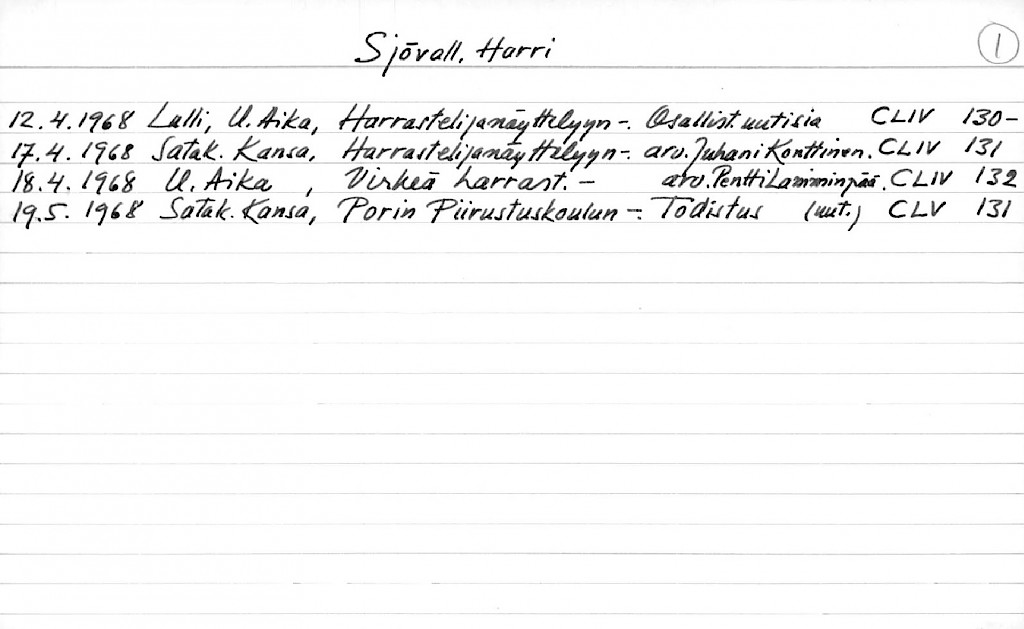 Sjövall, Harri
1
12.4.1968 Lalli, U. Aika, Harrastelijanäyttelyyn -. Osallist. uutisia CLIV 130-
17.4.1968 Satak. Kansa, Harrastelijanäyttelyyn -. arv. Juhani Konttinen. CLIV 131
18.4.1968 U. Aika , Virkeä harrast. - arv. Pentti Lamminpää. CLIV 132
19.5.1968 Satak. Kansa, Porin Piirustuskoulun -. Todistus (uut.) CLV 131